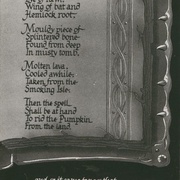 Wing of bat and
Hemlock root;
Mouldy piece of
Splintered bone
Found from deep
In musty tomb.
Molten lava,
Cooled awhile;
Taken from the
Smoking Isle;
Then the spell,
Shall be at hand
To rid the Pumpkin,
From the land.